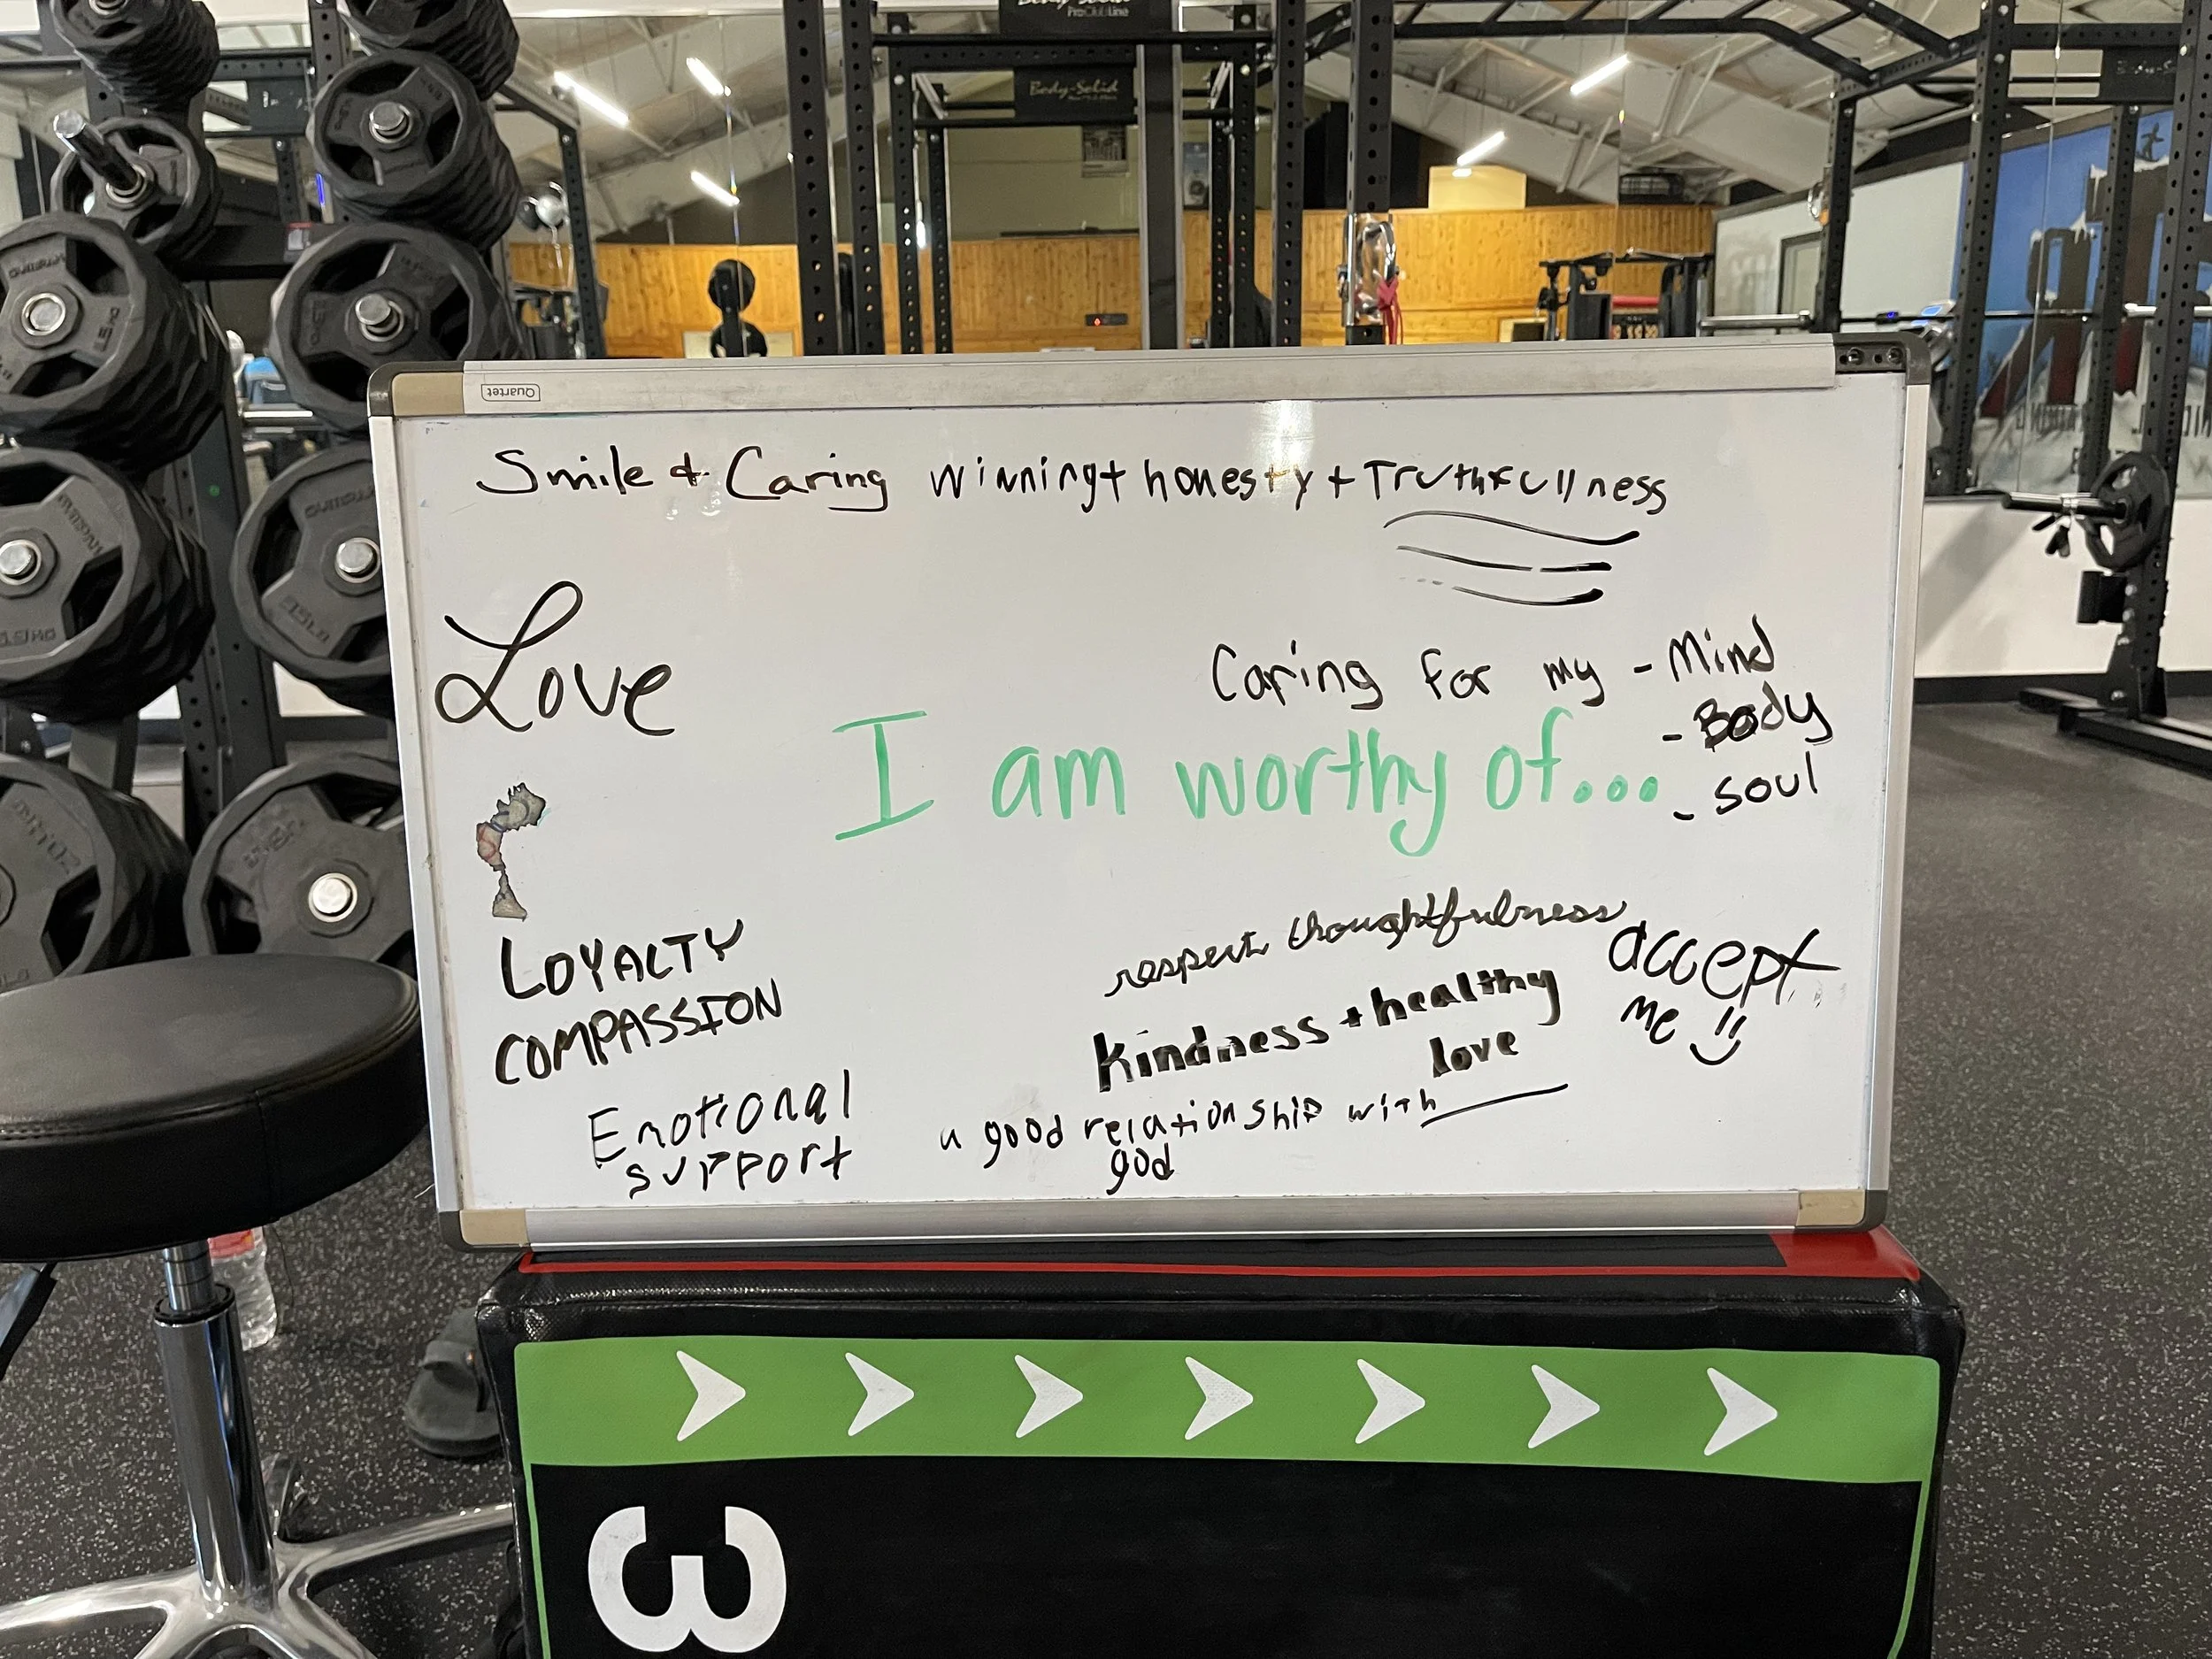 Body-Solid
ProClubLine
Body-Solid
Quartet
Smile + Caring winning + honesty + Truthfullness
Love
Caring for my - Mind
- Body
- soul
I am worthy of...
LOYALTY
COMPASSION
Emotional
support
respect thoughtfulness
kindness + healthy
love
accept
me
a good relationship with
god
3